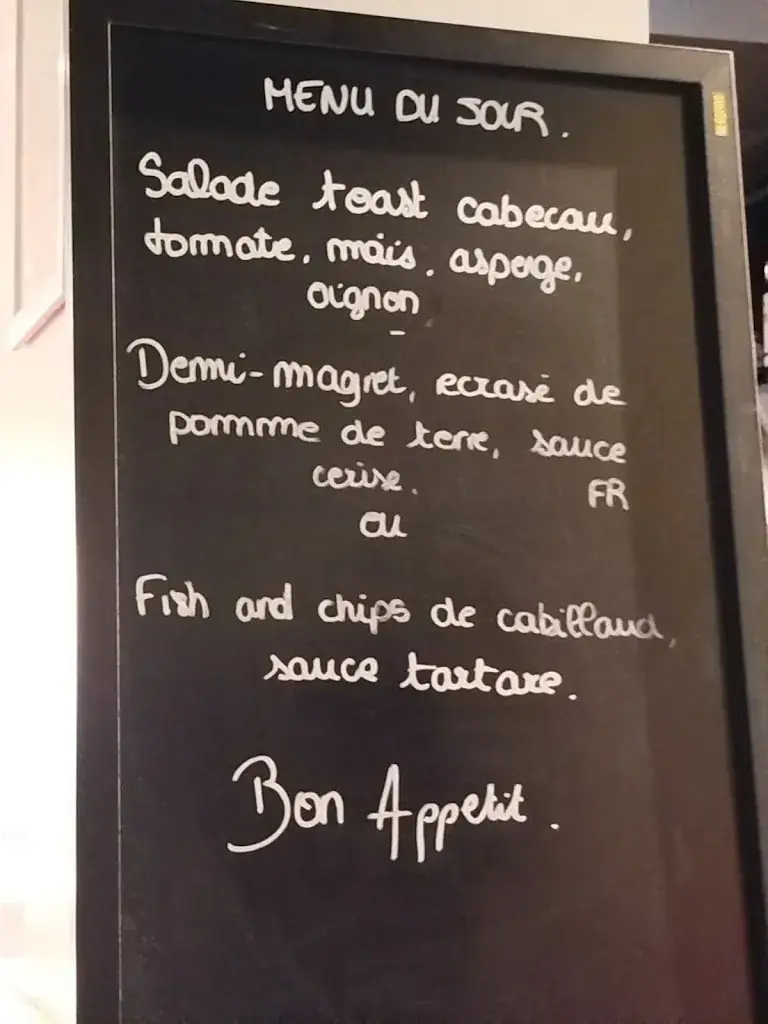 MENU DU JOUR.
Salade toast cabecau,
tomate, maïs, asperge,
oignon
-
Demi-magret, ecrasé de
pomme de terre, sauce
cerise. FR
ou
Fish and chips de cabillaud,
sauce tartare.
Bon Appetit.